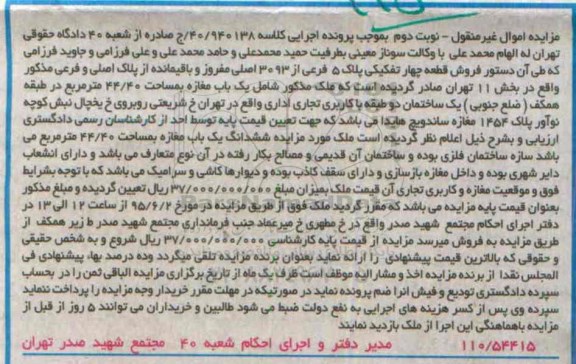 مزایده اموال غیرمنقول - نوبت دوم بموجب پرونده اجرایی کلاسه ۴۰/۹۴۰۱۳۸/ج صادره از شعبه ۴۰ دادگاه حقوقی
تهران له الهام محمد علی با وکالت سوناز معینی بطرفیت حمید محمدعلی و حامد محمد علی و علی فرزامی و جاوید فرزامی
که طی آن دستور فروش قطعه چهار تفکیکی پلاک ۵ فرعی از ۳۰۹۳ اصلی مفروز و باقیمانده از پلاک اصلی و فرعی مذکور
واقع در بخش ۱۱ تهران صادر گردیده است که ملک مذکور شامل یک باب مغازه بمساحت ۴۴/۴۰ مترمربع در طبقه
همکف ( ضلع جنوبی ) یک ساختمان دو طبقه با کاربری تجاری اداری واقع در تهران خ شریعتی روبروی خ یخچال نبش کوچه
نوآور پلاک ۱۴۵۴ مغازه ساندویچ هایدا می باشد که جهت تعیین قیمت پایه توسط احد از کارشناسان رسمی دادگستری
ارزیابی و بشرح ذیل اعلام نظر گردیده است ملک مورد مزایده ششدانگ یک باب مغازه بمساحت ۴۴/۴۰ مترمربع می
باشد سازه ساختمان فلزی بوده و ساختمان آن قدیمی و مصالح بکار رفته در آن نوع متعارف می باشد و دارای انشعاب
دایر شهری بوده و داخل مغازه بازسازی و دارای سقف کاذب بوده و دیوارها کاشی و سرامیک می باشد که با توجه بشرایط
فوق و موقعیت مغازه و کاربری تجاری آن قیمت ملک بمیزان مبلغ ۳۷/۰۰۰/۰۰۰/۰۰۰ ریال تعیین گردیده و مبلغ مذکور
بعنوان قیمت پایه مزایده می باشد که مقرر گردید ملک فوق از طریق مزایده در مورخ ۹۵/۶/۲ از ساعت ۱۲ الی ۱۳ در
دفتر اجرای احکام مجتمع شهید صدر واقع در خ مطهری خ میرعماد جنب فرمانداری مجتمع شهید صدر ط زیر همکف از
طریق مزایده به فروش میرسد مزایده از قیمت پایه کارشناسی ۳۷/۰۰۰/۰۰۰/۰۰۰ ریال شروع و به شخص حقیقی
و حقوقی که بالاترین قیمت پیشنهادی را ارائه نماید بعنوان برنده مزایده تلقی میگردد وده درصد بها، پیشنهادی فی
المجلس نقدا از برنده مزایده اخذ و مشارالیه موظف است ظرف یک ماه از تاریخ برگزاری مزایده الباقی ثمن را در بحساب
سپرده دادگستری تودیع و فیش انرا ضم پرونده نماید در صورتیکه در مهلت مقرر خریدار وجه مزایده را پرداخت ننماید
سپرده وی پس از کسر هزینه های اجرایی به نفع دولت ضبط می شود طالبین و خریداران می توانند ۵ روز از قبل از
مزایده باهماهنگی این اجرا از ملک بازدید نمایند
۱۱۰/۵۴۴۱۵ مدیر دفتر و اجرای احکام شعبه ۴۰ مجتمع شهید صدر تهران